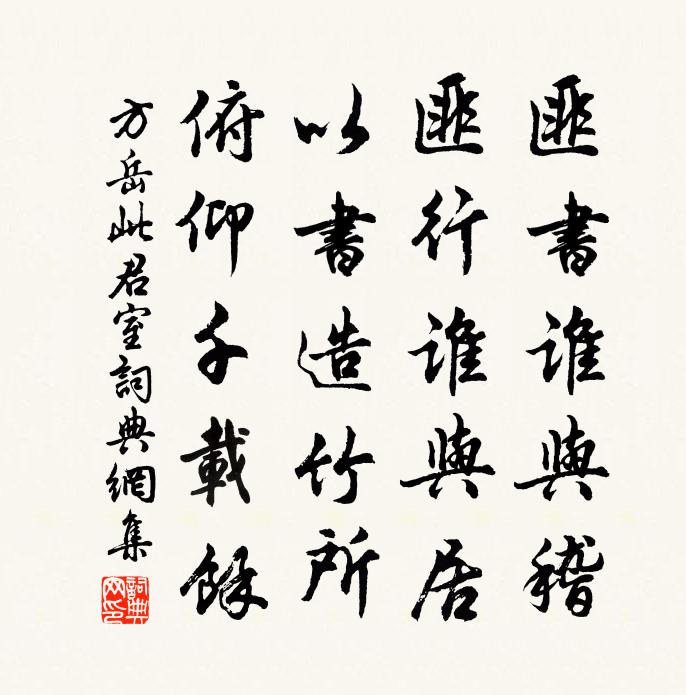 匪書誰與稽
匪行誰與居
以書造竹所
俯仰千載餘
方岳此君室詞典網集
詞典
网印